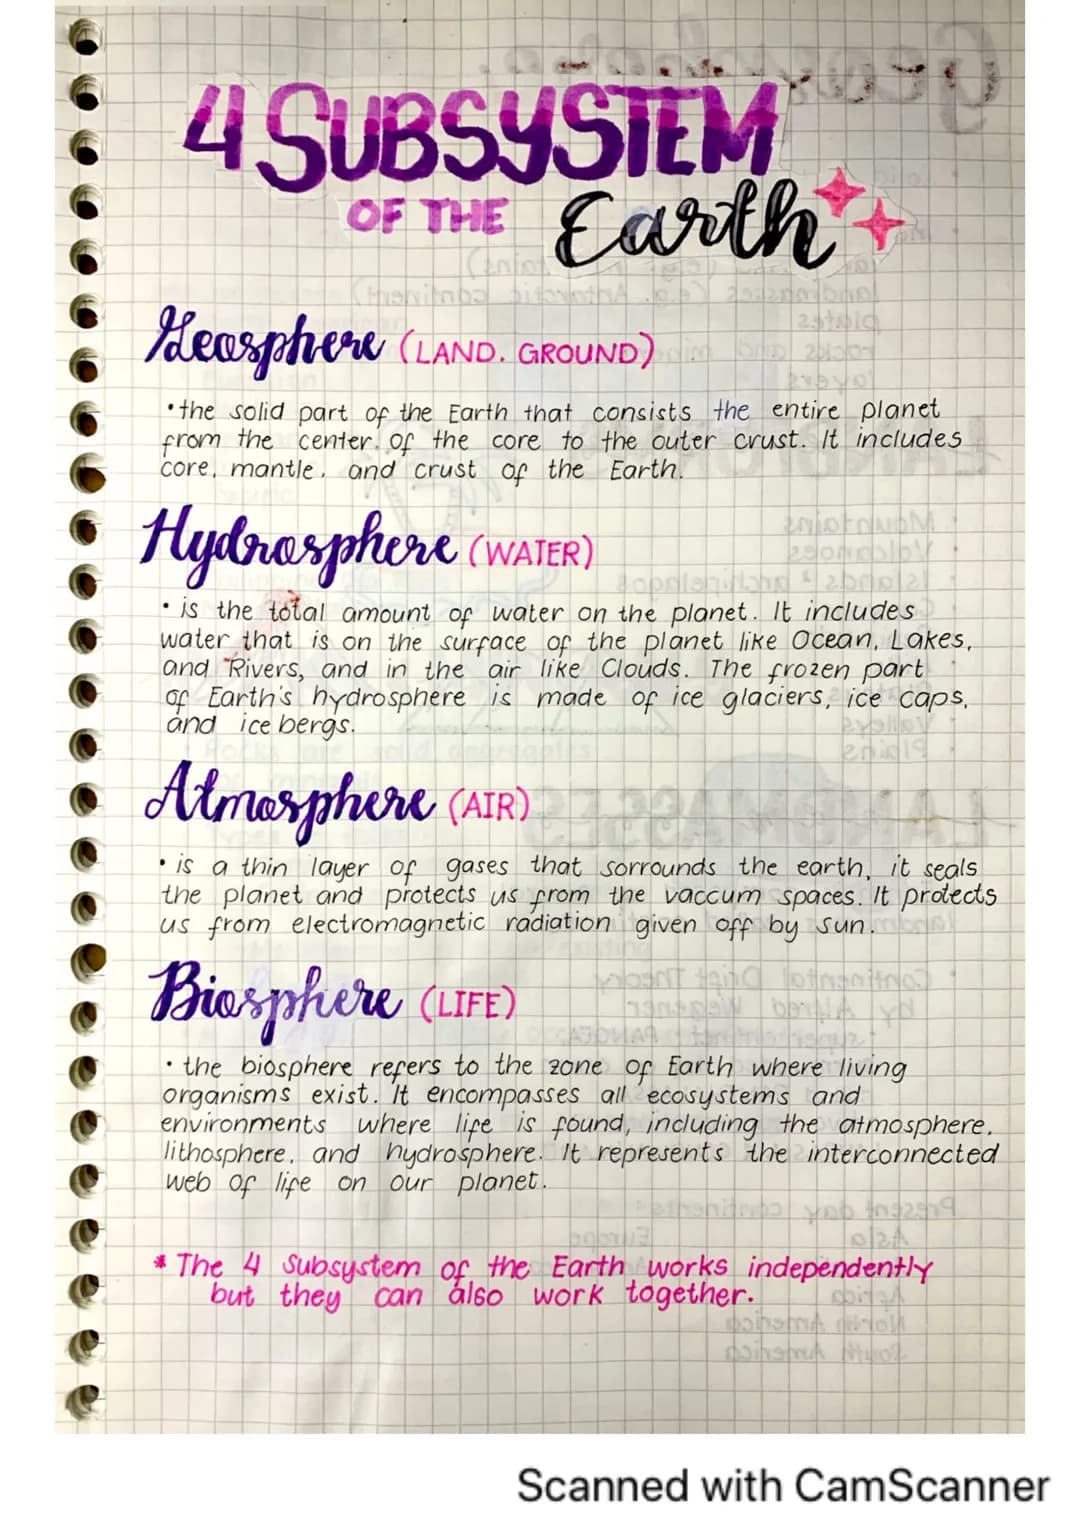 4 SUBSYSTEM
OF THE Earth
Geosphere (LAND. GROUND)
• the solid part of the Earth that consists the entire planet
from the center of the core to the outer crust. It includes
core, mantle, and crust of the Earth.
Hydrosphere (WATER)
• is the total amount of water on the planet. It includes
water that is on the surface of the planet like Ocean, Lakes,
and Rivers, and in the air like Clouds. The frozen part
of Earth's hydrosphere is made of ice glaciers, ice caps,
and icebergs.
Atmosphere (AIR)
• is a thin layer of gases that sorrounds the earth, it seals
the planet and protects us from the vaccum spaces. It protects
us from electromagnetic radiation given off by sun.
Biosphere (LIFE)
• the biosphere refers to the zone of Earth where living
organisms exist. It encompasses all ecosystems and
environments where life is found, including the atmosphere,
lithosphere, and hydrosphere. It represents the interconnected
web of life on our planet.
* The 4 Subsystem of the Earth works independently
but they can also work together.
Scanned with CamScanner